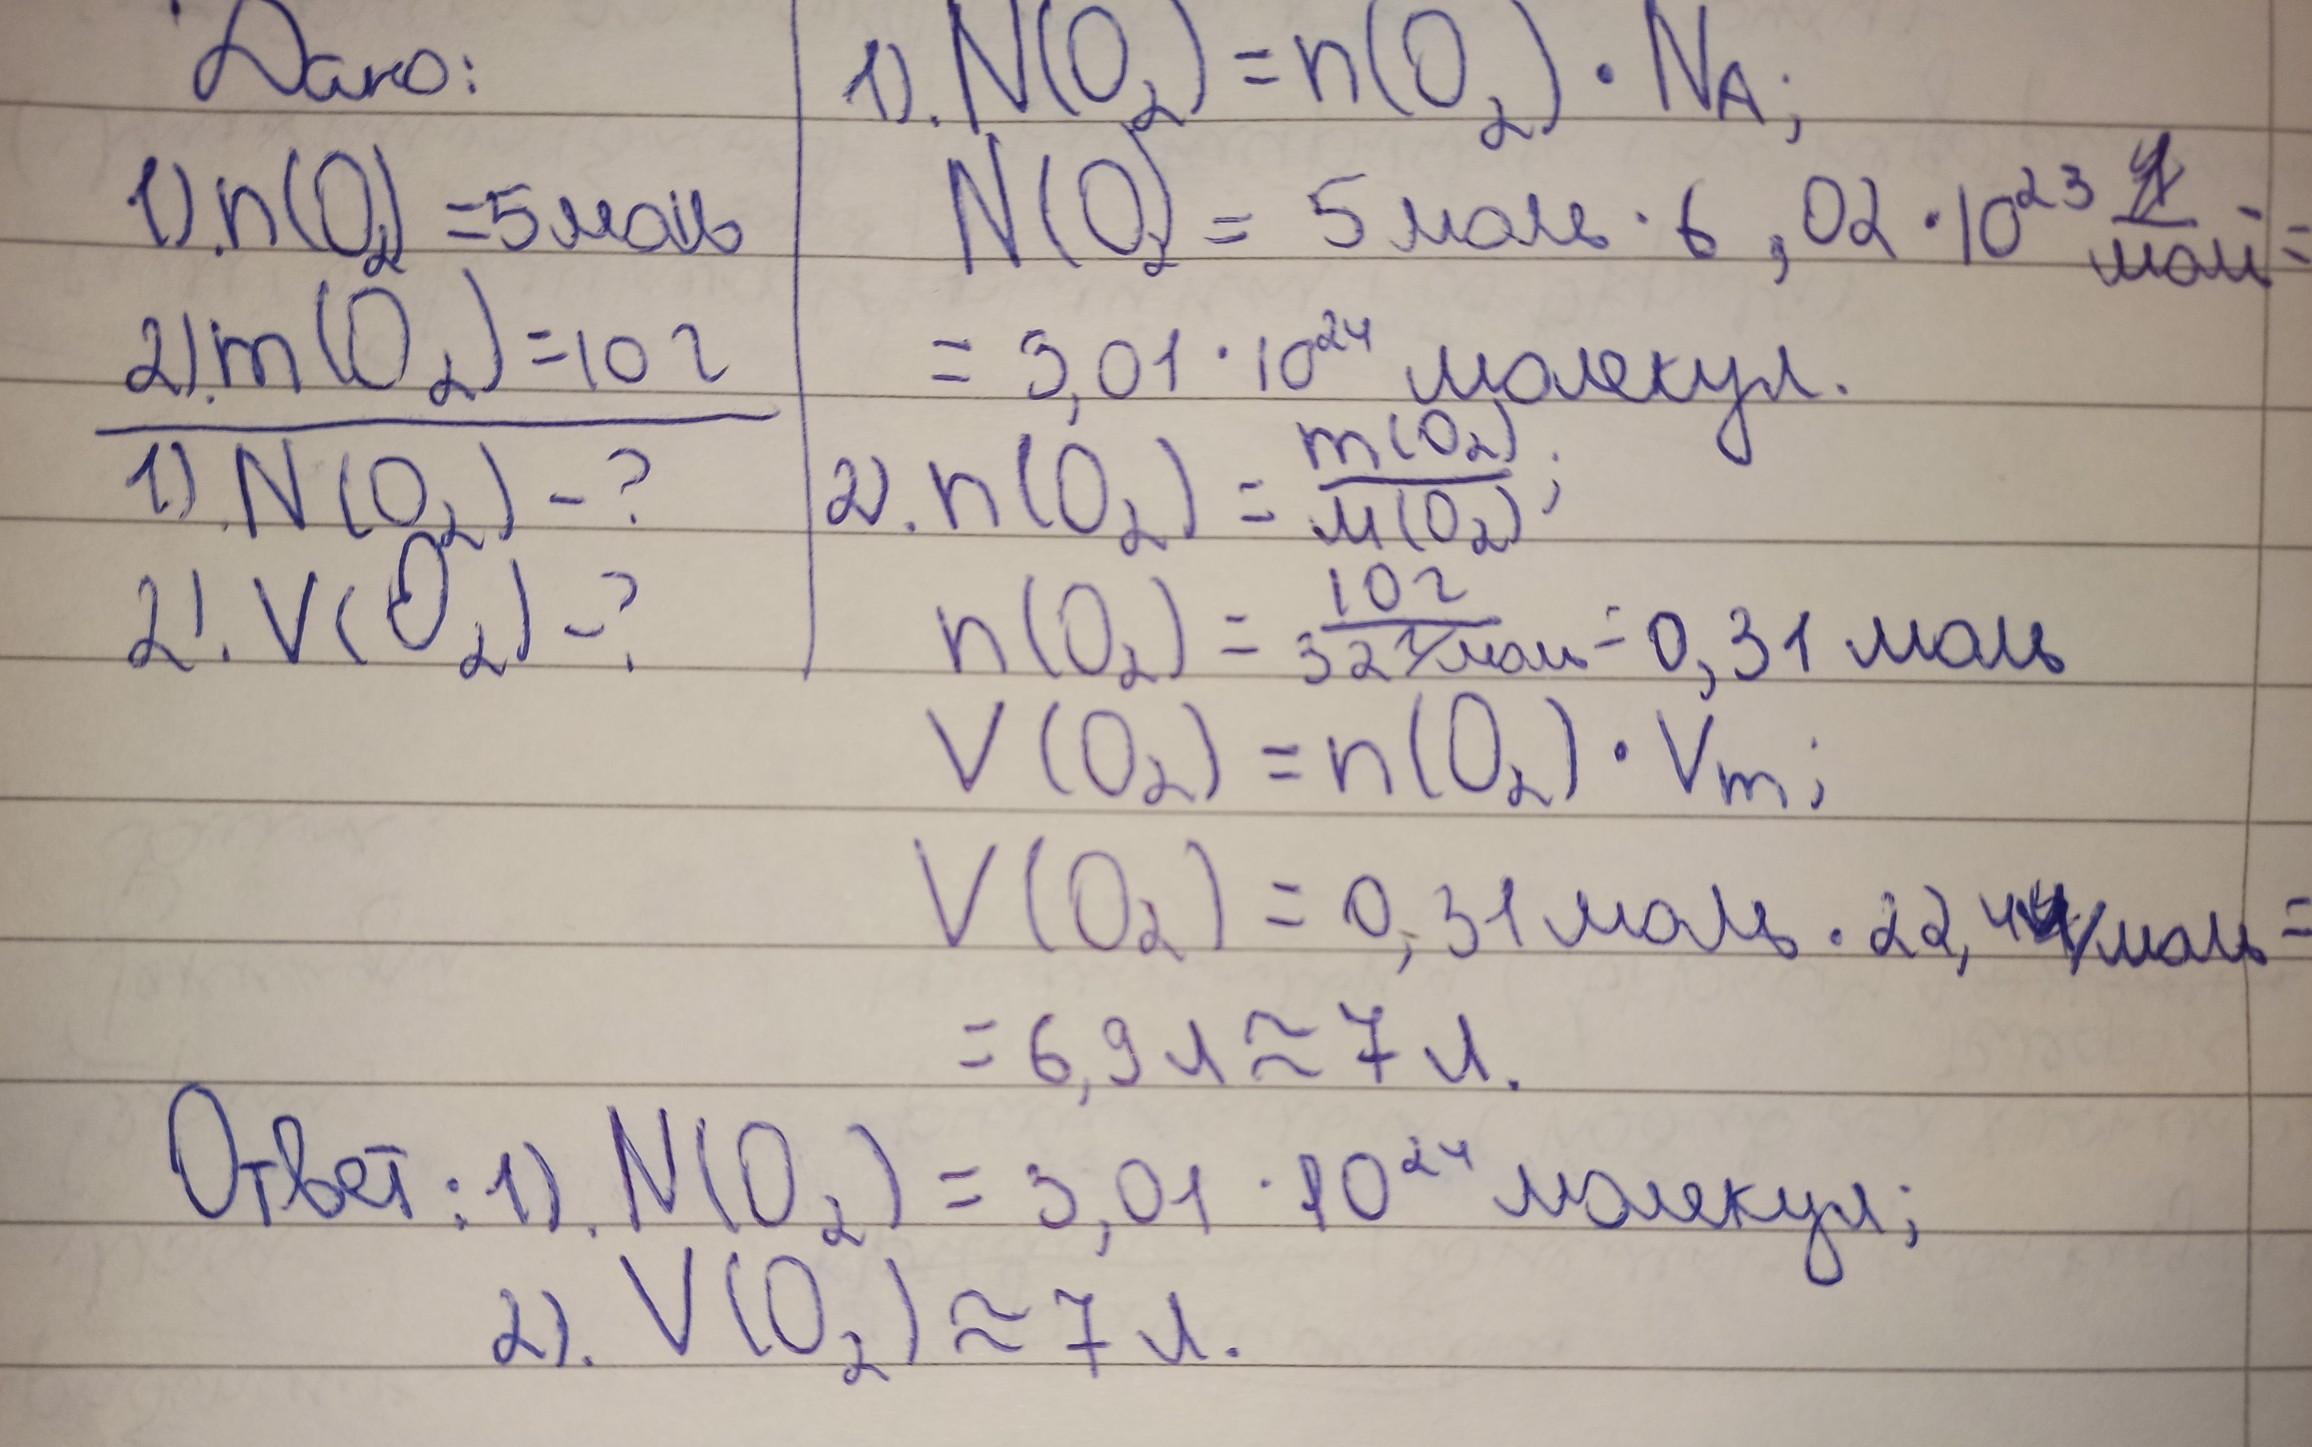 Дано:
1). n(O₂) = 5 моль
2). m(O₂) = 10 г
1). N(O₂) - ?
2). V(O₂) - ?
1). N(O₂) = n(O₂) · Nᴀ;
N(O₂) = 5 моль · 6,02 · 10²³ 1/моль =
= 3,01 · 10²⁴ молекул.
2). n(O₂) = m(O₂)/M(O₂);
n(O₂) = 10 г/32 г/моль = 0,31 моль
V(O₂) = n(O₂) · Vm;
V(O₂) = 0,31 моль · 22,4 л/моль =
= 6,9 л ≈ 7 л.
Ответ: 1). N(O₂) = 3,01 · 10²⁴ молекул;
2). V(O₂) ≈ 7 л.